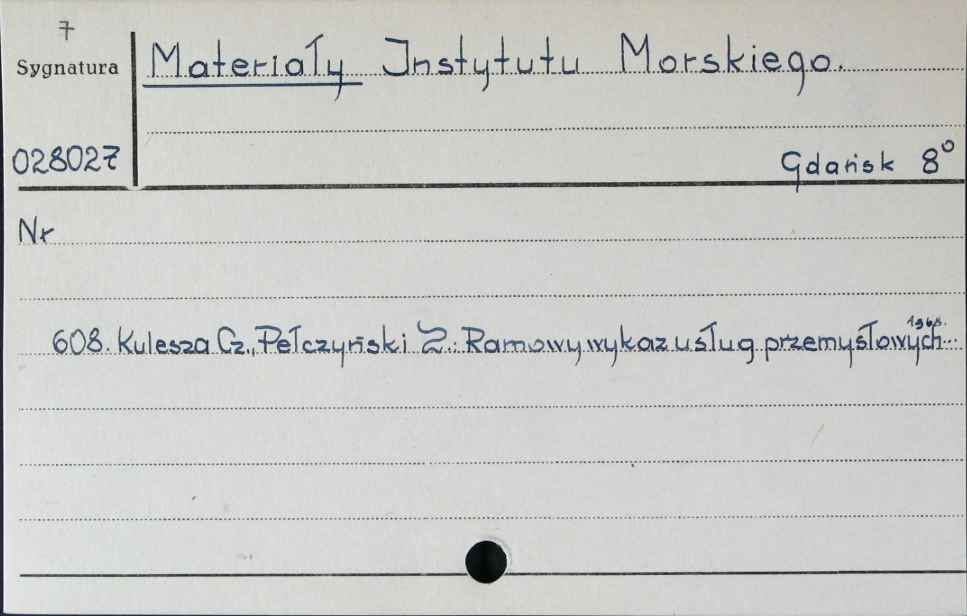 7
Sygnatura
Materiały Instytutu Morskiego.
028027
Gdańsk 8°
Nr
1968.
608. Kulesza Cz., Pełczyński Z.: Ramowy wykaz usług przemysłowych...